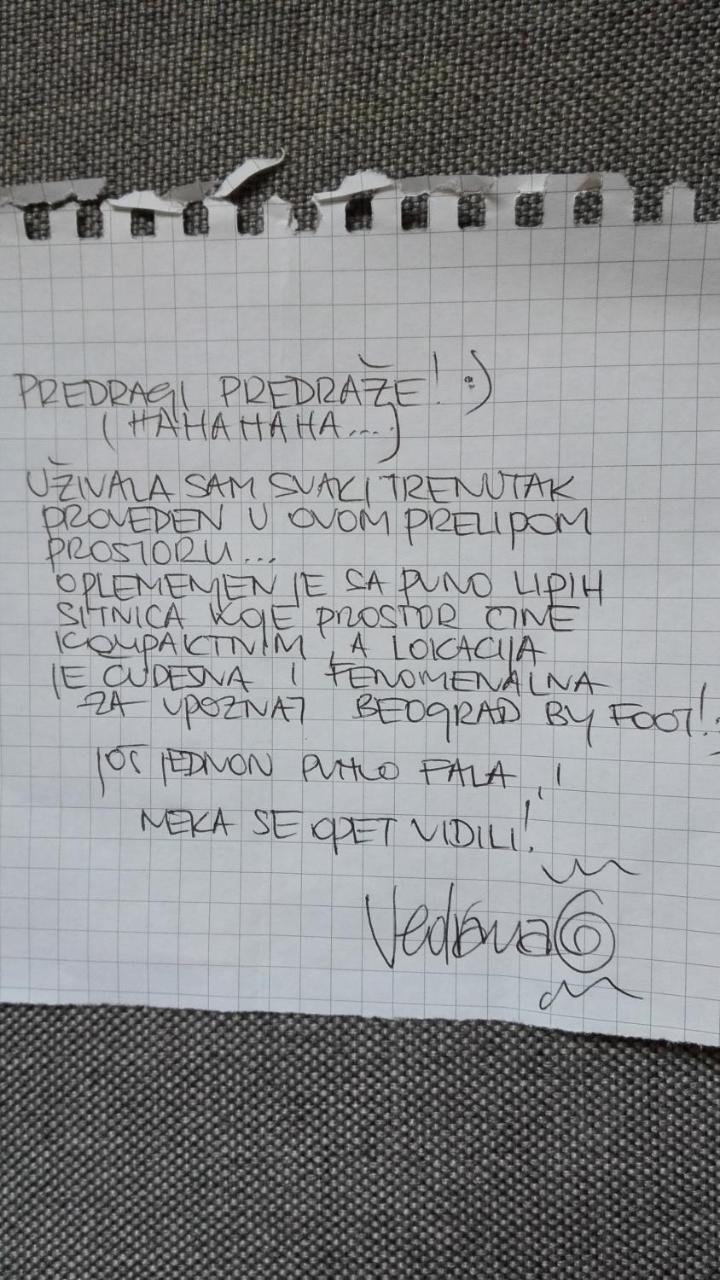 PREDRAGI PREDRAŽE! :)
(HAHAHAHA...)
UŽIVALA SAM SVAKI TRENUTAK
PROVEDEN U OVOM PRELIPOM
PROSTORU...
OPLEMEMEN JE SA PUNO LIPIH
SITNICA KOJE PROSTOR CINE
KOMPAKTNIM, A LOKACIJA
JE CUDESNA I FENOMENALNA
ZA UPOZNAT BEOGRAD BY FOOT!
JOŠ JEDNON PUNO FALA!
NEKA SE OPET VIDILI!
Vedrana